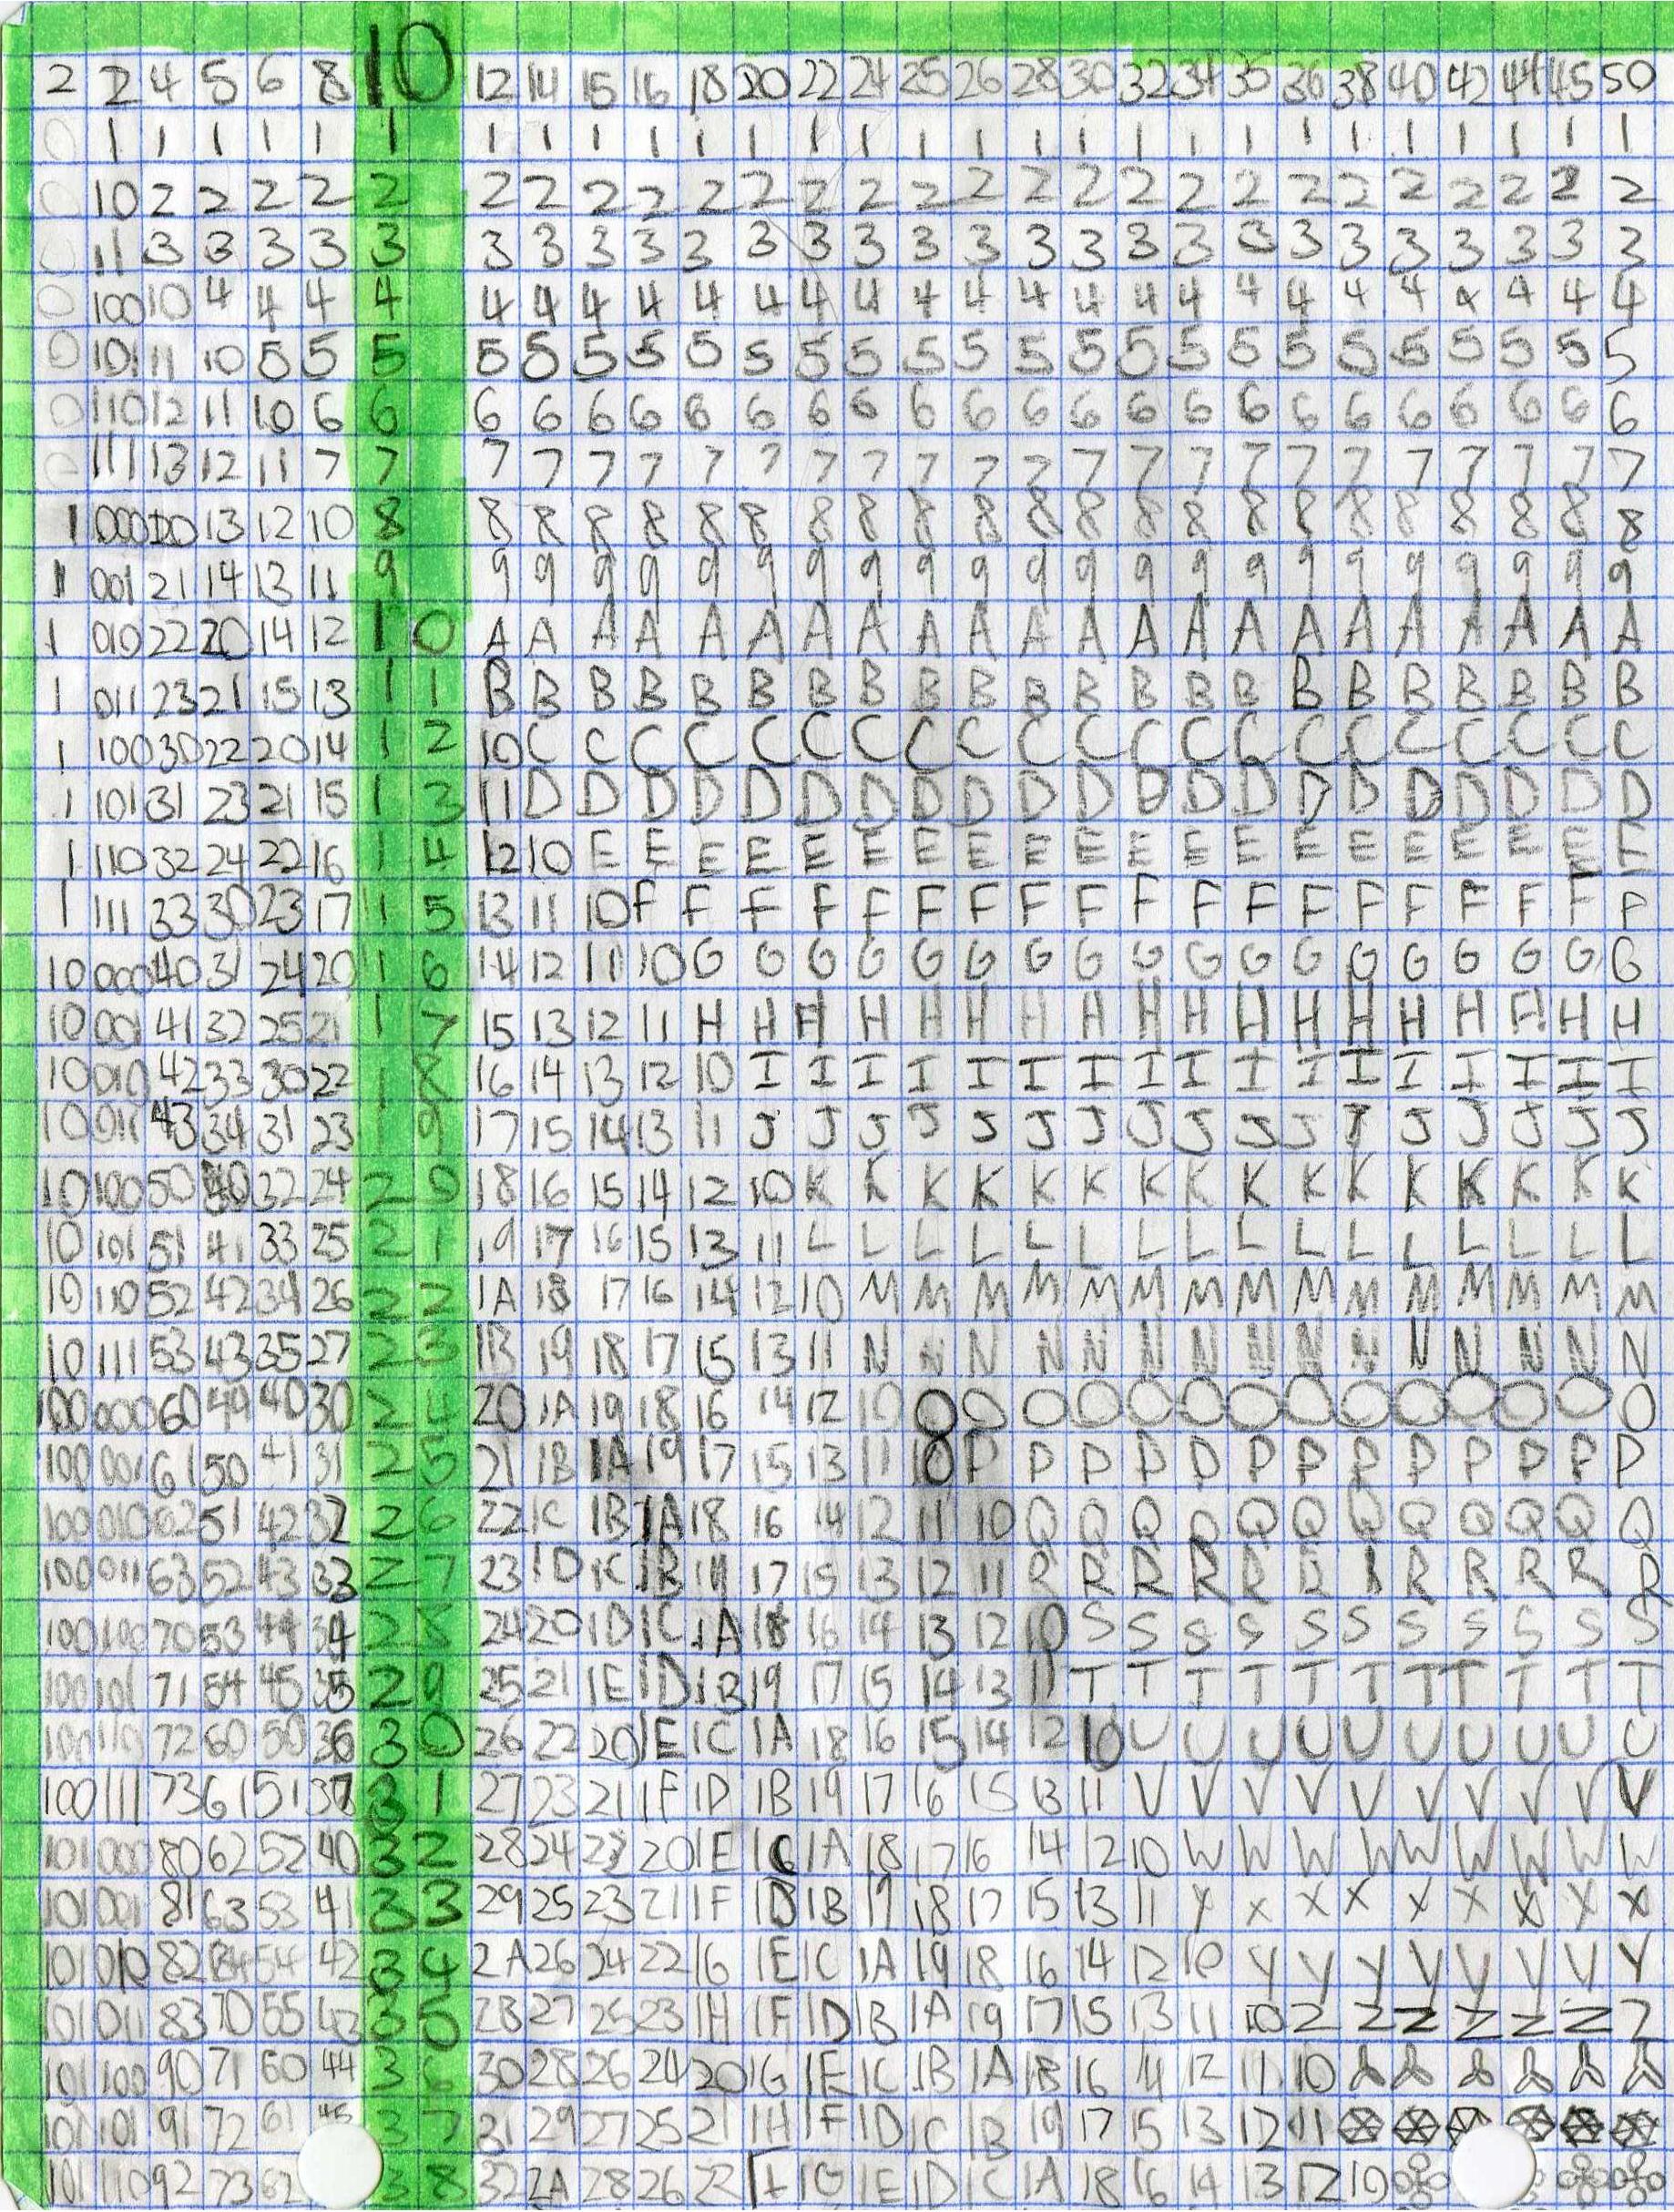 2 2 4 5 6 8 10 12 14 15 16 18 20 22 24 25 26 28 30 32 34 35 36 38 40 42 44 45 50
0 1 1 1 1 1 1 1 1 1 1 1 1 1 1 1 1 1 1 1 1 1 1 1 1 1 1 1 1
0 10 2 2 2 2 2 2 2 2 2 2 2 2 2 2 2 2 2 2 2 2 2 2 2 2 2 2 2
0 11 3 3 3 3 3 3 3 3 3 3 3 3 3 3 3 3 3 3 3 3 3 3 3 3 3 3 3
0 100 10 4 4 4 4 4 4 4 4 4 4 4 4 4 4 4 4 4 4 4 4 4 4 4 4 4 4
0 101 11 10 5 5 5 5 5 5 5 5 5 5 5 5 5 5 5 5 5 5 5 5 5 5 5 5 5
0 110 12 11 10 6 6 6 6 6 6 6 6 6 6 6 6 6 6 6 6 6 6 6 6 6 6 6 6
0 111 13 12 11 7 7 7 7 7 7 7 7 7 7 7 7 7 7 7 7 7 7 7 7 7 7 7 7
1 000 20 13 12 10 8 8 8 8 8 8 8 8 8 8 8 8 8 8 8 8 8 8 8 8 8 8 8
1 001 21 14 13 11 9 9 9 9 9 9 9 9 9 9 9 9 9 9 9 9 9 9 9 9 9 9 9
1 010 22 20 14 12 1 0 A A A A A A A A A A A A A A A A A A A A A A
1 011 23 21 15 13 1 1 B B B B B B B B B B B B B B B B B B B B B B
1 100 30 22 20 14 1 2 10 C C C C C C C C C C C C C C C C C C C C C
1 101 31 23 21 15 1 3 11 D D D D D D D D D D D D D D D D D D D D D
1 110 32 24 22 16 1 4 12 10 E E E E E E E E E E E E E E E E E E E E
1 111 33 30 23 17 1 5 13 11 10 F F F F F F F F F F F F F F F F F F F
10 000 40 31 24 20 1 6 14 12 11 10 G G G G G G G G G G G G G G G G G G
10 001 41 32 25 21 1 7 15 13 12 11 H H H H H H H H H H H H H H H H H H
10 010 42 33 30 22 1 8 16 14 13 12 10 I I I I I I I I I I I I I I I I I
10 011 43 34 31 23 1 9 17 15 14 13 11 J J J J J J J J J J J J J J J J J
10 100 50 40 32 24 2 0 18 16 15 14 12 10 K K K K K K K K K K K K K K K K
10 101 51 41 33 25 2 1 19 17 16 15 13 11 L L L L L L L L L L L L L L L L
10 110 52 42 34 26 2 2 1A 18 17 16 14 12 10 M M M M M M M M M M M M M M M
10 111 53 43 35 27 2 3 1B 19 18 17 15 13 11 N N N N N N N N N N N N N N N
100 000 60 44 40 30 2 4 20 1A 19 18 16 14 12 10 O O O O O O O O O O O O O O
100 001 61 50 41 31 2 5 21 1B 1A 19 17 15 13 11 10 P P P P P P P P P P P P P
100 010 62 51 42 32 2 6 22 1C 1B 1A 18 16 14 12 11 10 Q Q Q Q Q Q Q Q Q Q Q Q
100 011 63 52 43 33 2 7 23 1D 1C 1B 19 17 15 13 12 11 R R R R R R R R R R R R
100 100 70 53 44 34 2 8 24 20 1D 1C 1A 18 16 14 13 12 10 S S S S S S S S S S S
100 101 71 54 45 35 2 9 25 21 1E 1D 1B 19 17 15 14 13 11 T T T T T T T T T T T
100 110 72 60 50 36 3 0 26 22 20 1E 1C 1A 18 16 15 14 12 10 U U U U U U U U U U
100 111 73 61 51 37 3 1 27 23 21 1F 1D 1B 19 17 16 15 13 11 V V V V V V V V V V
101 000 80 62 52 40 3 2 28 24 22 20 1E 1C 1A 18 17 16 14 12 10 W W W W W W W W W
101 001 81 63 53 41 3 3 29 25 23 21 1F 1D 1B 19 18 17 15 13 11 X X X X X X X X X
101 010 82 64 54 42 3 4 2A 26 24 22 1G 1E 1C 1A 19 18 16 14 12 10 Y Y Y Y Y Y Y Y
101 011 83 70 55 43 3 5 2B 27 25 23 1H 1F 1D 1B 1A 19 17 15 13 11 10 Z Z Z Z Z Z Z
101 100 90 71 60 44 3 6 30 28 26 24 20 1G 1E 1C 1B 1A 18 16 14 12 11 10
101 101 91 72 61 45 3 7 31 29 27 25 21 1H 1F 1D 1C 1B 19 17 15 13 12 11
101 110 92 73 62 3 8 32 2A 28 26 22 1I 1G 1E 1D 1C 1A 18 16 14 13 12 10